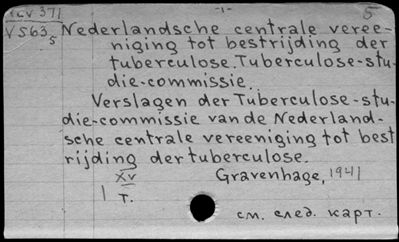 -1- 5
V 563 5 Nederlandsche centrale veree-
niging tot bestrijding der
tuberculose. Tuberculose-stu-
die-commissie.
Verslagen der Tuberculose-stu-
die-commissie van de Nederland-
sche centrale vereeniging tot best
rijding der tuberculose.
XV Gravenhage, 1941
1 т.
см. след. карт.